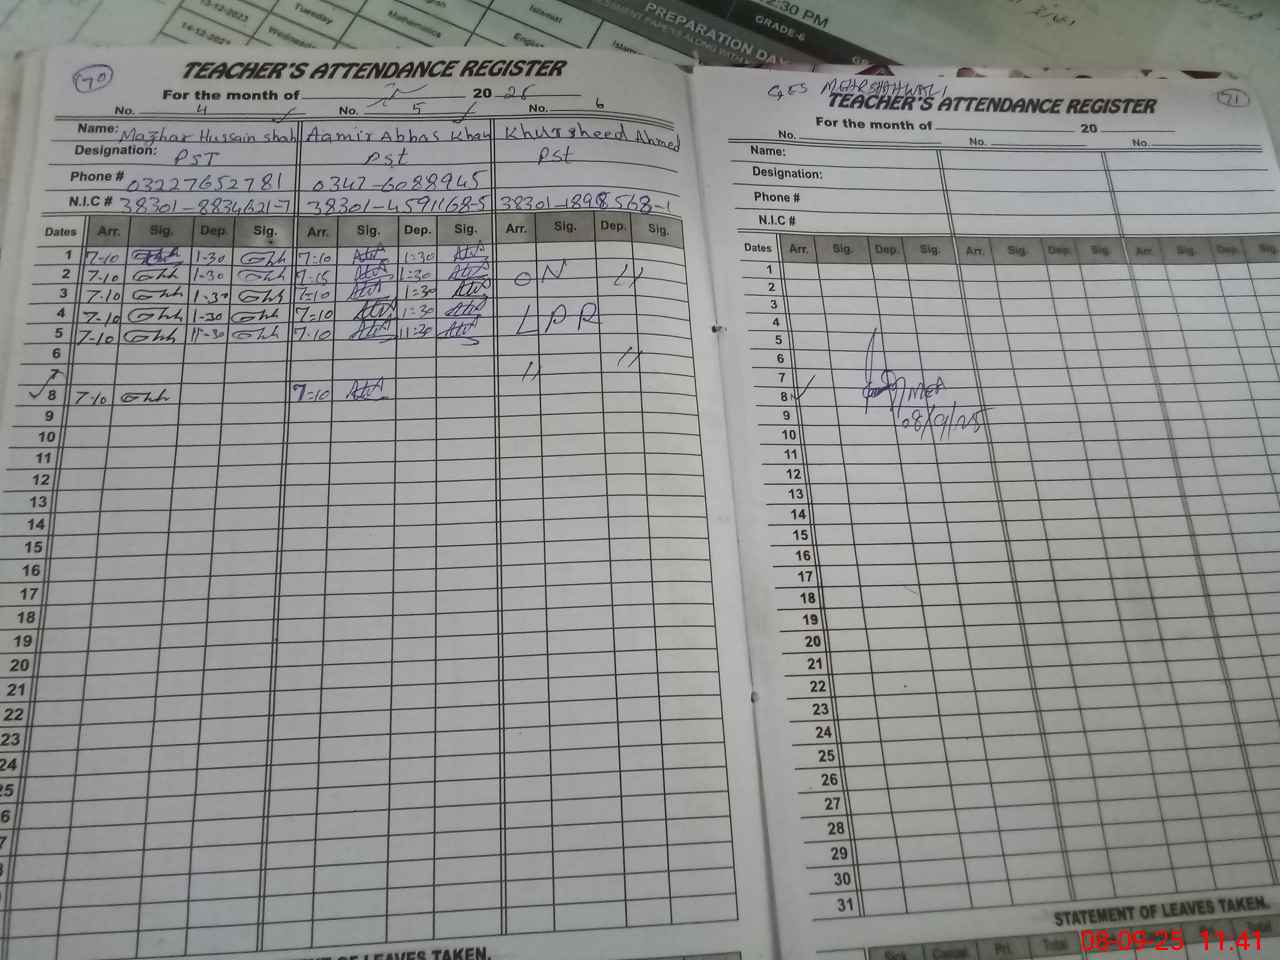 13-12-2023 Tuesday Islamiat
14-12-202 Wednesday Mathematics English
PREPARATION DAY
GRADE-6
12:30 PM
70
TEACHER'S ATTENDANCE REGISTER
For the month of 20 25
No. 4 No. 5 No. 6
Name: Mazhar Hussain shah Aamir Abbas Khan Khursheed Ahmed
Designation: PST Pst Pst
Phone # 03227652781 0347-6088945
N.I.C # 38301-8834621-7 38301-4591168-5 38301-1898568-1
Dates Arr. Sig. Dep. Sig. Arr. Sig. Dep. Sig. Arr. Sig. Dep. Sig.
1 7-10 1-30 7=10 1=30
2 7-10 1-30 7=15 1=30 ON "
3 7-10 1-30 7=10 1=30
4 7-10 1-30 7=10 1=30 LPR
5 7-10 11-30 7-10 11=30
6 "
7 "
8 7-10 7=10
9
10
11
12
13
14
15
16
17
18
19
20
21
22
23
24
25
6
7
OF LEAVES TAKEN.
GES MEHR SHAH WALI
71
TEACHER'S ATTENDANCE REGISTER
For the month of 20
No. No. No.
Name:
Designation:
Phone #
N.I.C #
Dates Arr. Sig. Dep. Sig. Arr. Sig. Dep. Sig. Arr. Sig. Dep. Sig.
1
2
3
4
5
6
7
8 MEA
9 08/9/25
10
11
12
13
14
15
16
17
18
19
20
21
22
23
24
25
26
27
28
29
30
31
STATEMENT OF LEAVES TAKEN.
Sick Casual Pri. Total Total
08-09-25 11:41